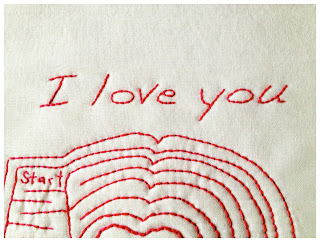 I love you
Start